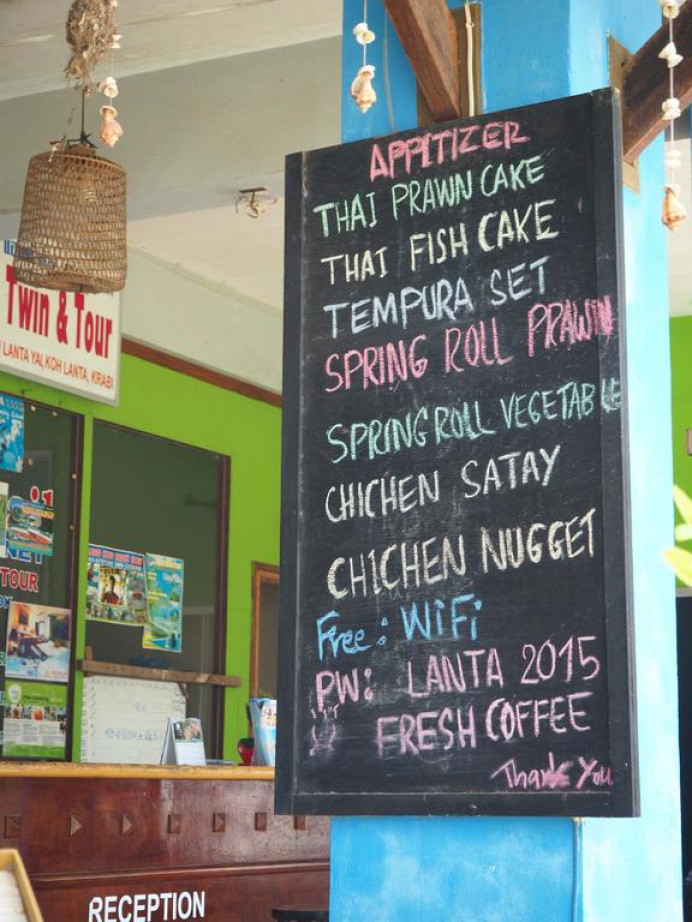 APPITIZER
THAI PRAWN CAKE
THAI FISH CAKE
TEMPURA SET
SPRING ROLL PRAWN
SPRING ROLL VEGETABLE
CHICHEN SATAY
CHICHEN NUGGET
Free: WiFi
PW: LANTA 2015
FRESH COFFEE
Thank You
Twin & Tour
LANTA YAI, KOH LANTA, KRABI
TOUR
RECEPTION